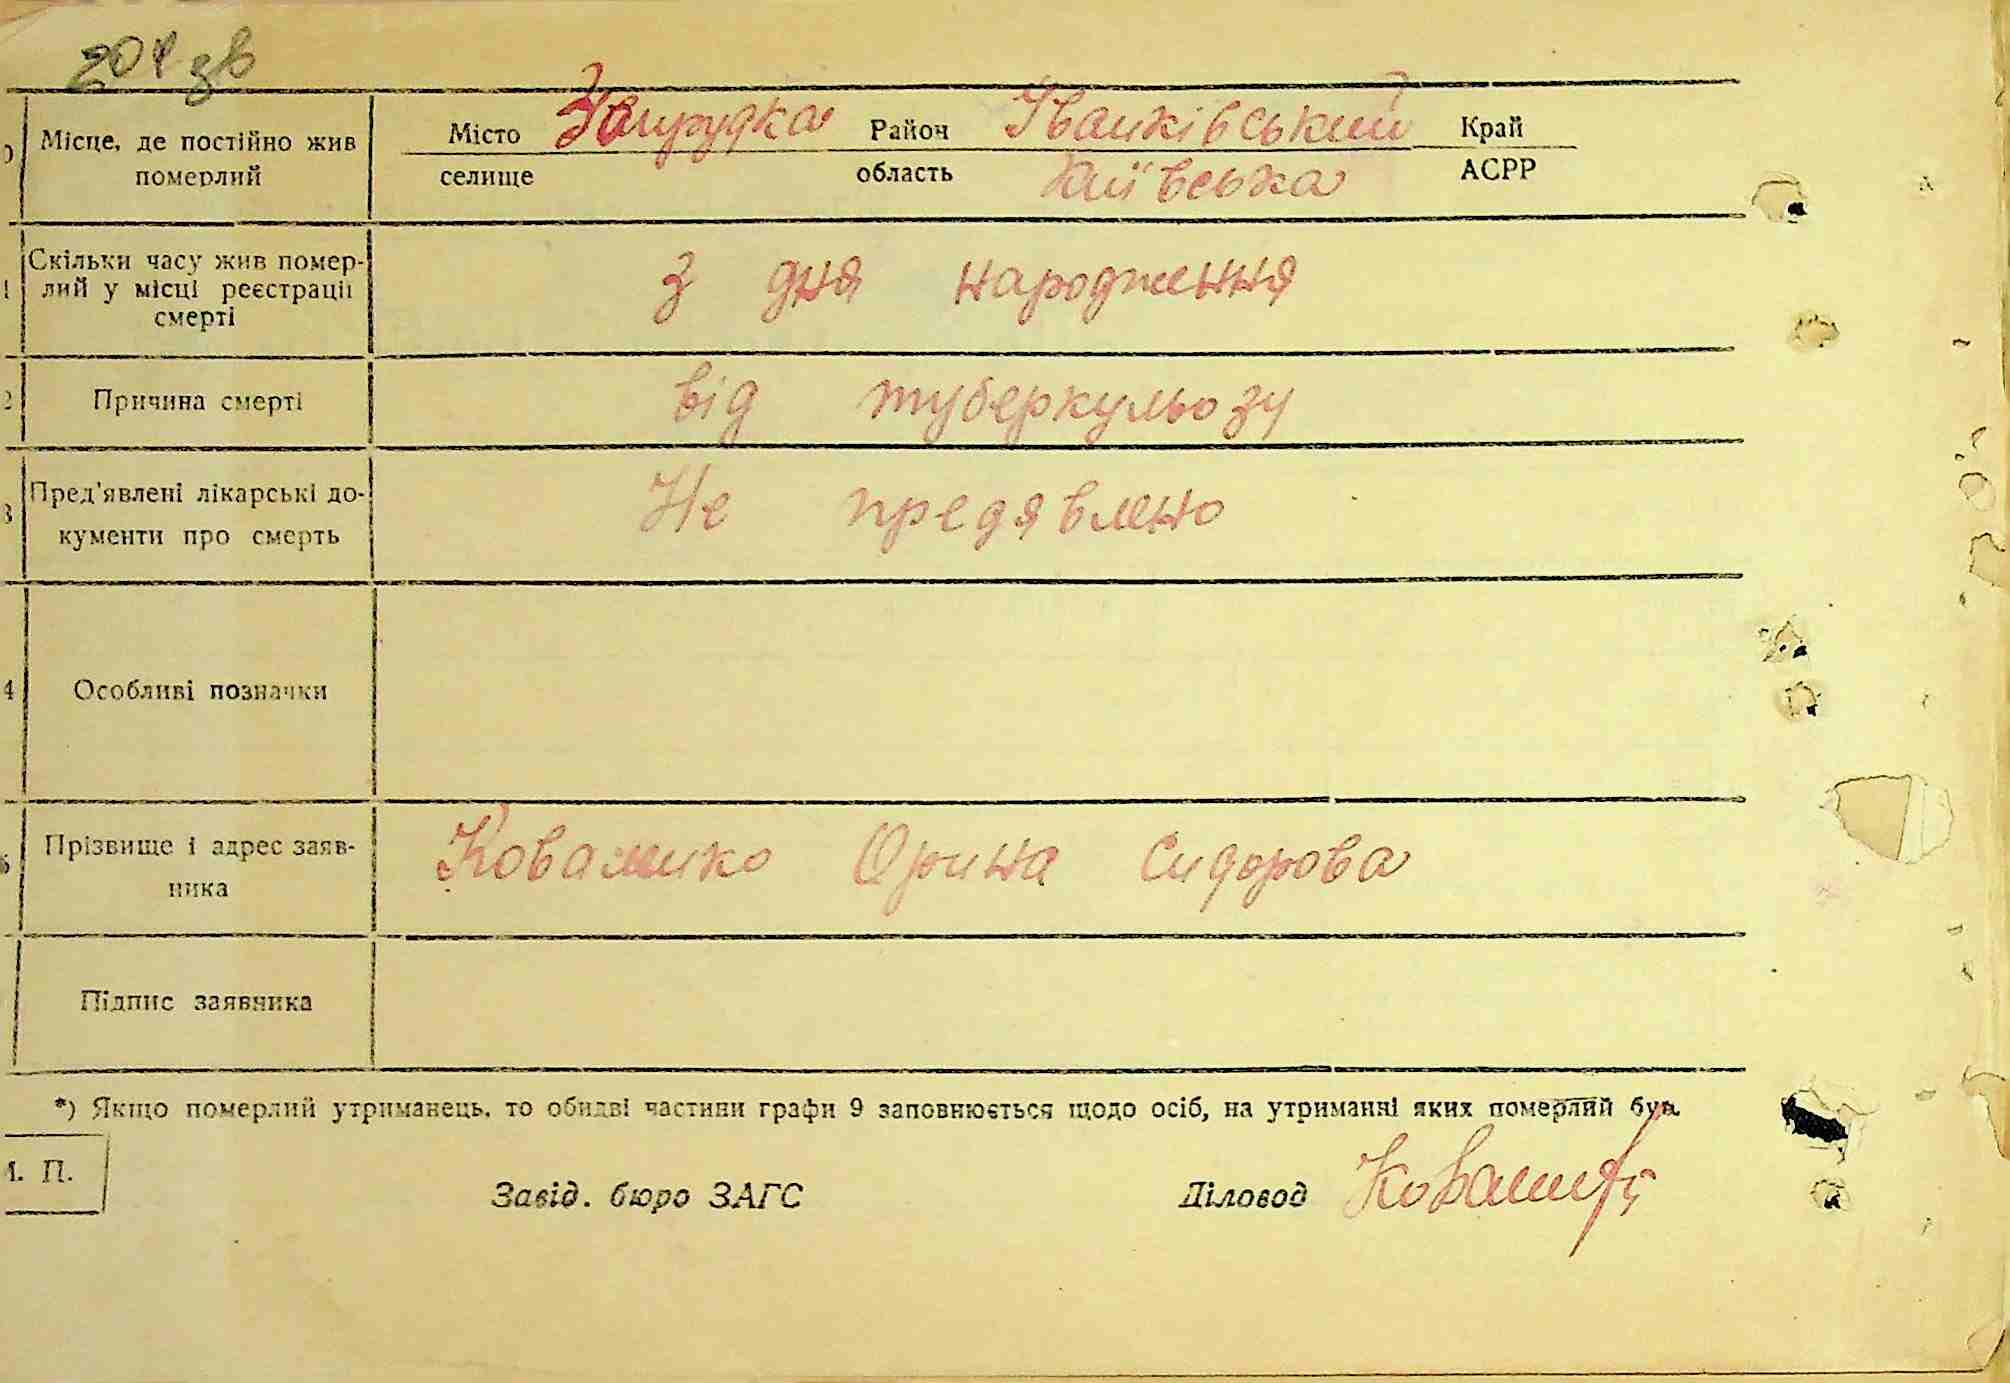 201 зв
0 Місце, де постійно жив померлий
Місто Запрудка Район Іванківський Край
селище область Київська АСРР
1 Скільки часу жив помер-
лий у місці реєстрації
смерті
з дня народження
2 Причина смерті від туберкульозу
3 Пред'явлені лікарські до-
кументи про смерть
Не предявлено
4 Особливі позначки
5 Прізвище і адрес заяв-
ника
Коваленко Орина Сидорова
Підпис заявника
*) Якщо померлий утриманець, то обидві частини графи 9 заповнюється щодо осіб, на утриманні яких померлий був.
М. П.
Завід. бюро ЗАГС Діловод